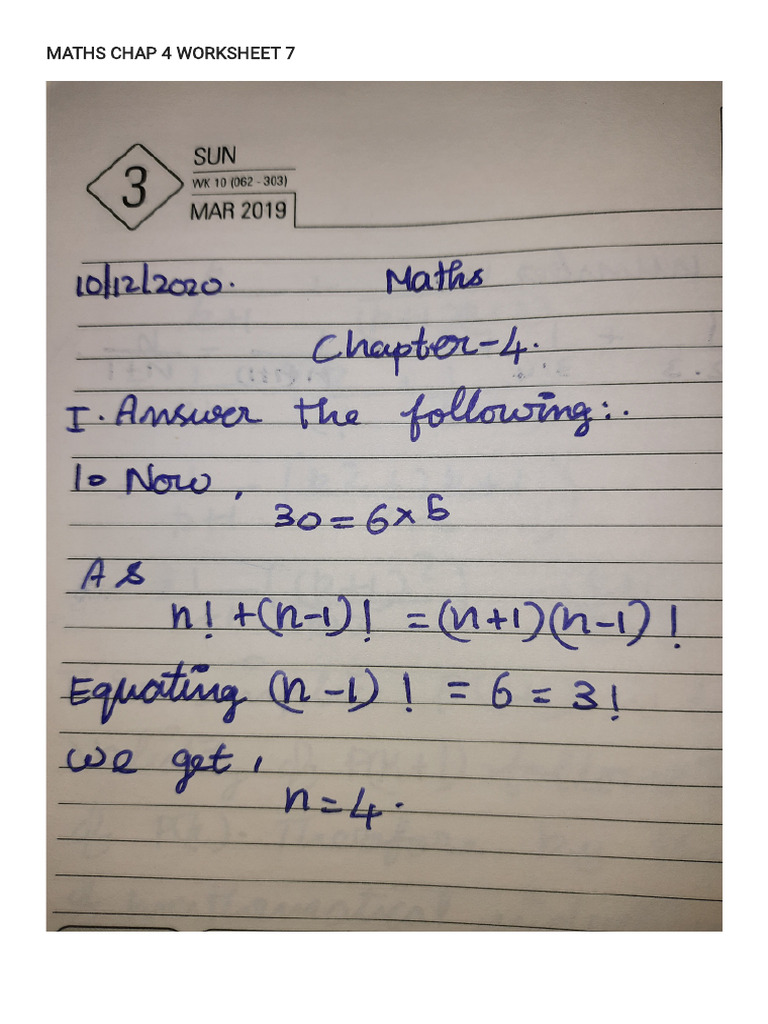 MATHS CHAP 4 WORKSHEET 7
3
SUN
WK 10 (062 - 303)
MAR 2019
10/12/2020. Maths
Chapter-4.
I. Answer the following:.
1. Now,
30 = 6 × 5
As
n! + (n-1)! = (n+1)(n-1)!
Equating (n-1)! = 6 = 3!
we get,
n = 4.